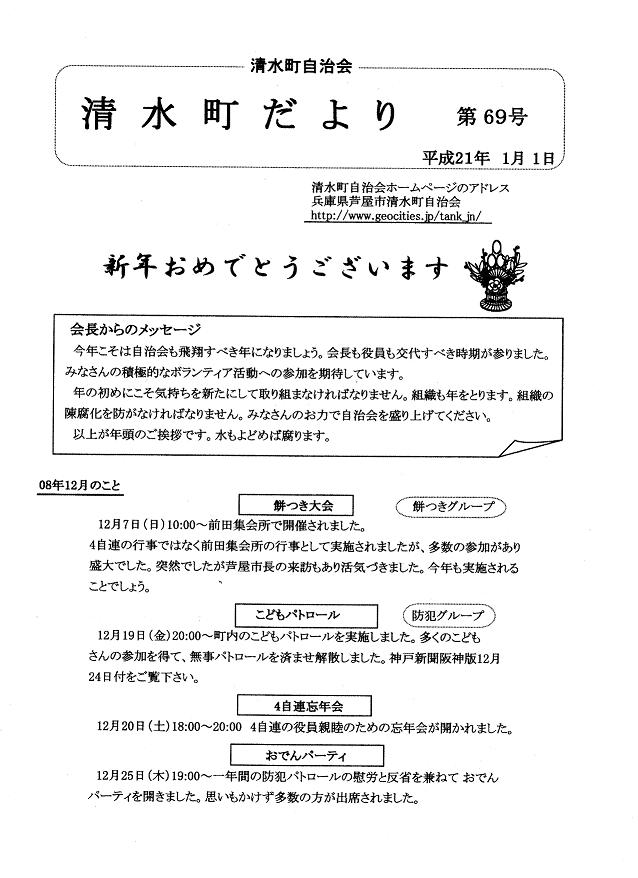 清水町自治会
清水町だより 第69号
平成21年 1月1日
清水町自治会ホームページのアドレス
兵庫県芦屋市清水町自治会
http://www.geocities.jp/tank_jn/
新年おめでとうございます
会長からのメッセージ
今年こそは自治会も飛翔すべき年になりましょう。会長も役員も交代すべき時期が参りました。
みなさんの積極的なボランティア活動への参加を期待しています。
年の初めにこそ気持ちを新たにして取り組まなければなりません。組織も年をとります。組織の
陳腐化を防がなければなりません。みなさんのお力で自治会を盛り上げてください。
以上が年頭のご挨拶です。水もよどめば腐ります。
08年12月のこと
餅つき大会 餅つきグループ
12月7日（日）10:00～前田集会所で開催されました。
4自連の行事ではなく前田集会所の行事として実施されましたが、多数の参加があり
盛大でした。突然でしたが芦屋市長の来訪もあり活気づきました。今年も実施される
ことでしょう。
こどもパトロール 防犯グループ
12月19日（金）20:00～町内のこどもパトロールを実施しました。多くのこども
さんの参加を得て、無事パトロールを済ませ解散しました。神戸新聞阪神版12月
24日付をご覧下さい。
4自連忘年会
12月20日（土）18:00～20:00 4自連の役員親睦のための忘年会が開かれました。
おでんパーティ
12月25日（木）19:00～一年間の防犯パトロールの慰労と反省を兼ねて おでん
パーティを開きました。思いもかけず多数の方が出席されました。